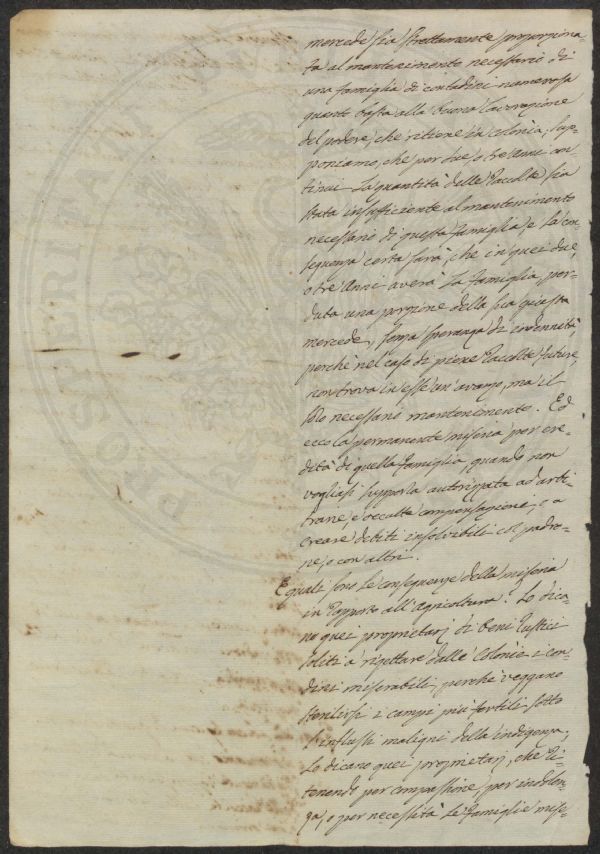 mercede sia strettamente proporziona
ta al mantenimento necessario di
una famiglia di contadini numerosa
quanto basta alla buona lavorazione
del podere, che ritiene in colonia, sup-
poniamo, che per due, o tre anni con-
tinui la quantità delle raccolte sia
stata insufficiente al mantenimento
necessario di questa famiglia, e la con
seguenza certa sarà, che in quei due,
o tre anni averà la famiglia per-
duta una porzione della sua giusta
mercede, senza speranza di indennità
perchè nel caso di piene raccolte future,
non trova in esse un'avanzo, ma il
solo necessario mantenimento. Ed
ecco la permanente miseria per ere-
dità di quella famiglia, quando non
vogliasi supporla autorizzata ad arbi-
trarie, e occulte compensazioni, o a
creare debiti insolvibili col padro-
ne, o con altri.
E quali sono le conseguenze della miseria
in rapporto all'agricoltura. Lo dica-
no quei proprietarj di beni rustici
soliti a rigettare dalle colonie i con-
dini miserabili, perchè veggano
sterilirsi i campi più fertili sotto
l'influssi maligni della indigenza;
Lo dicano quei proprietarj, che ri-
tenendo per compassione, per indolen-
za, o per necessità le famiglie mise-
PROSTERITATI